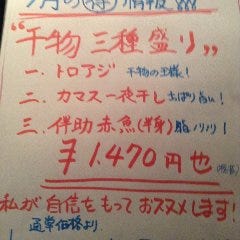 7月の(得)情報!!!
“干物三種盛り„
一、トロアジ 干物の王様!
二、カマス一夜干し さっぱり旨い!
三、伴助赤魚(半身) 脂ノリノリ!
¥1,470円也(税込)
私が自信をもっておススメします!
通常価格より